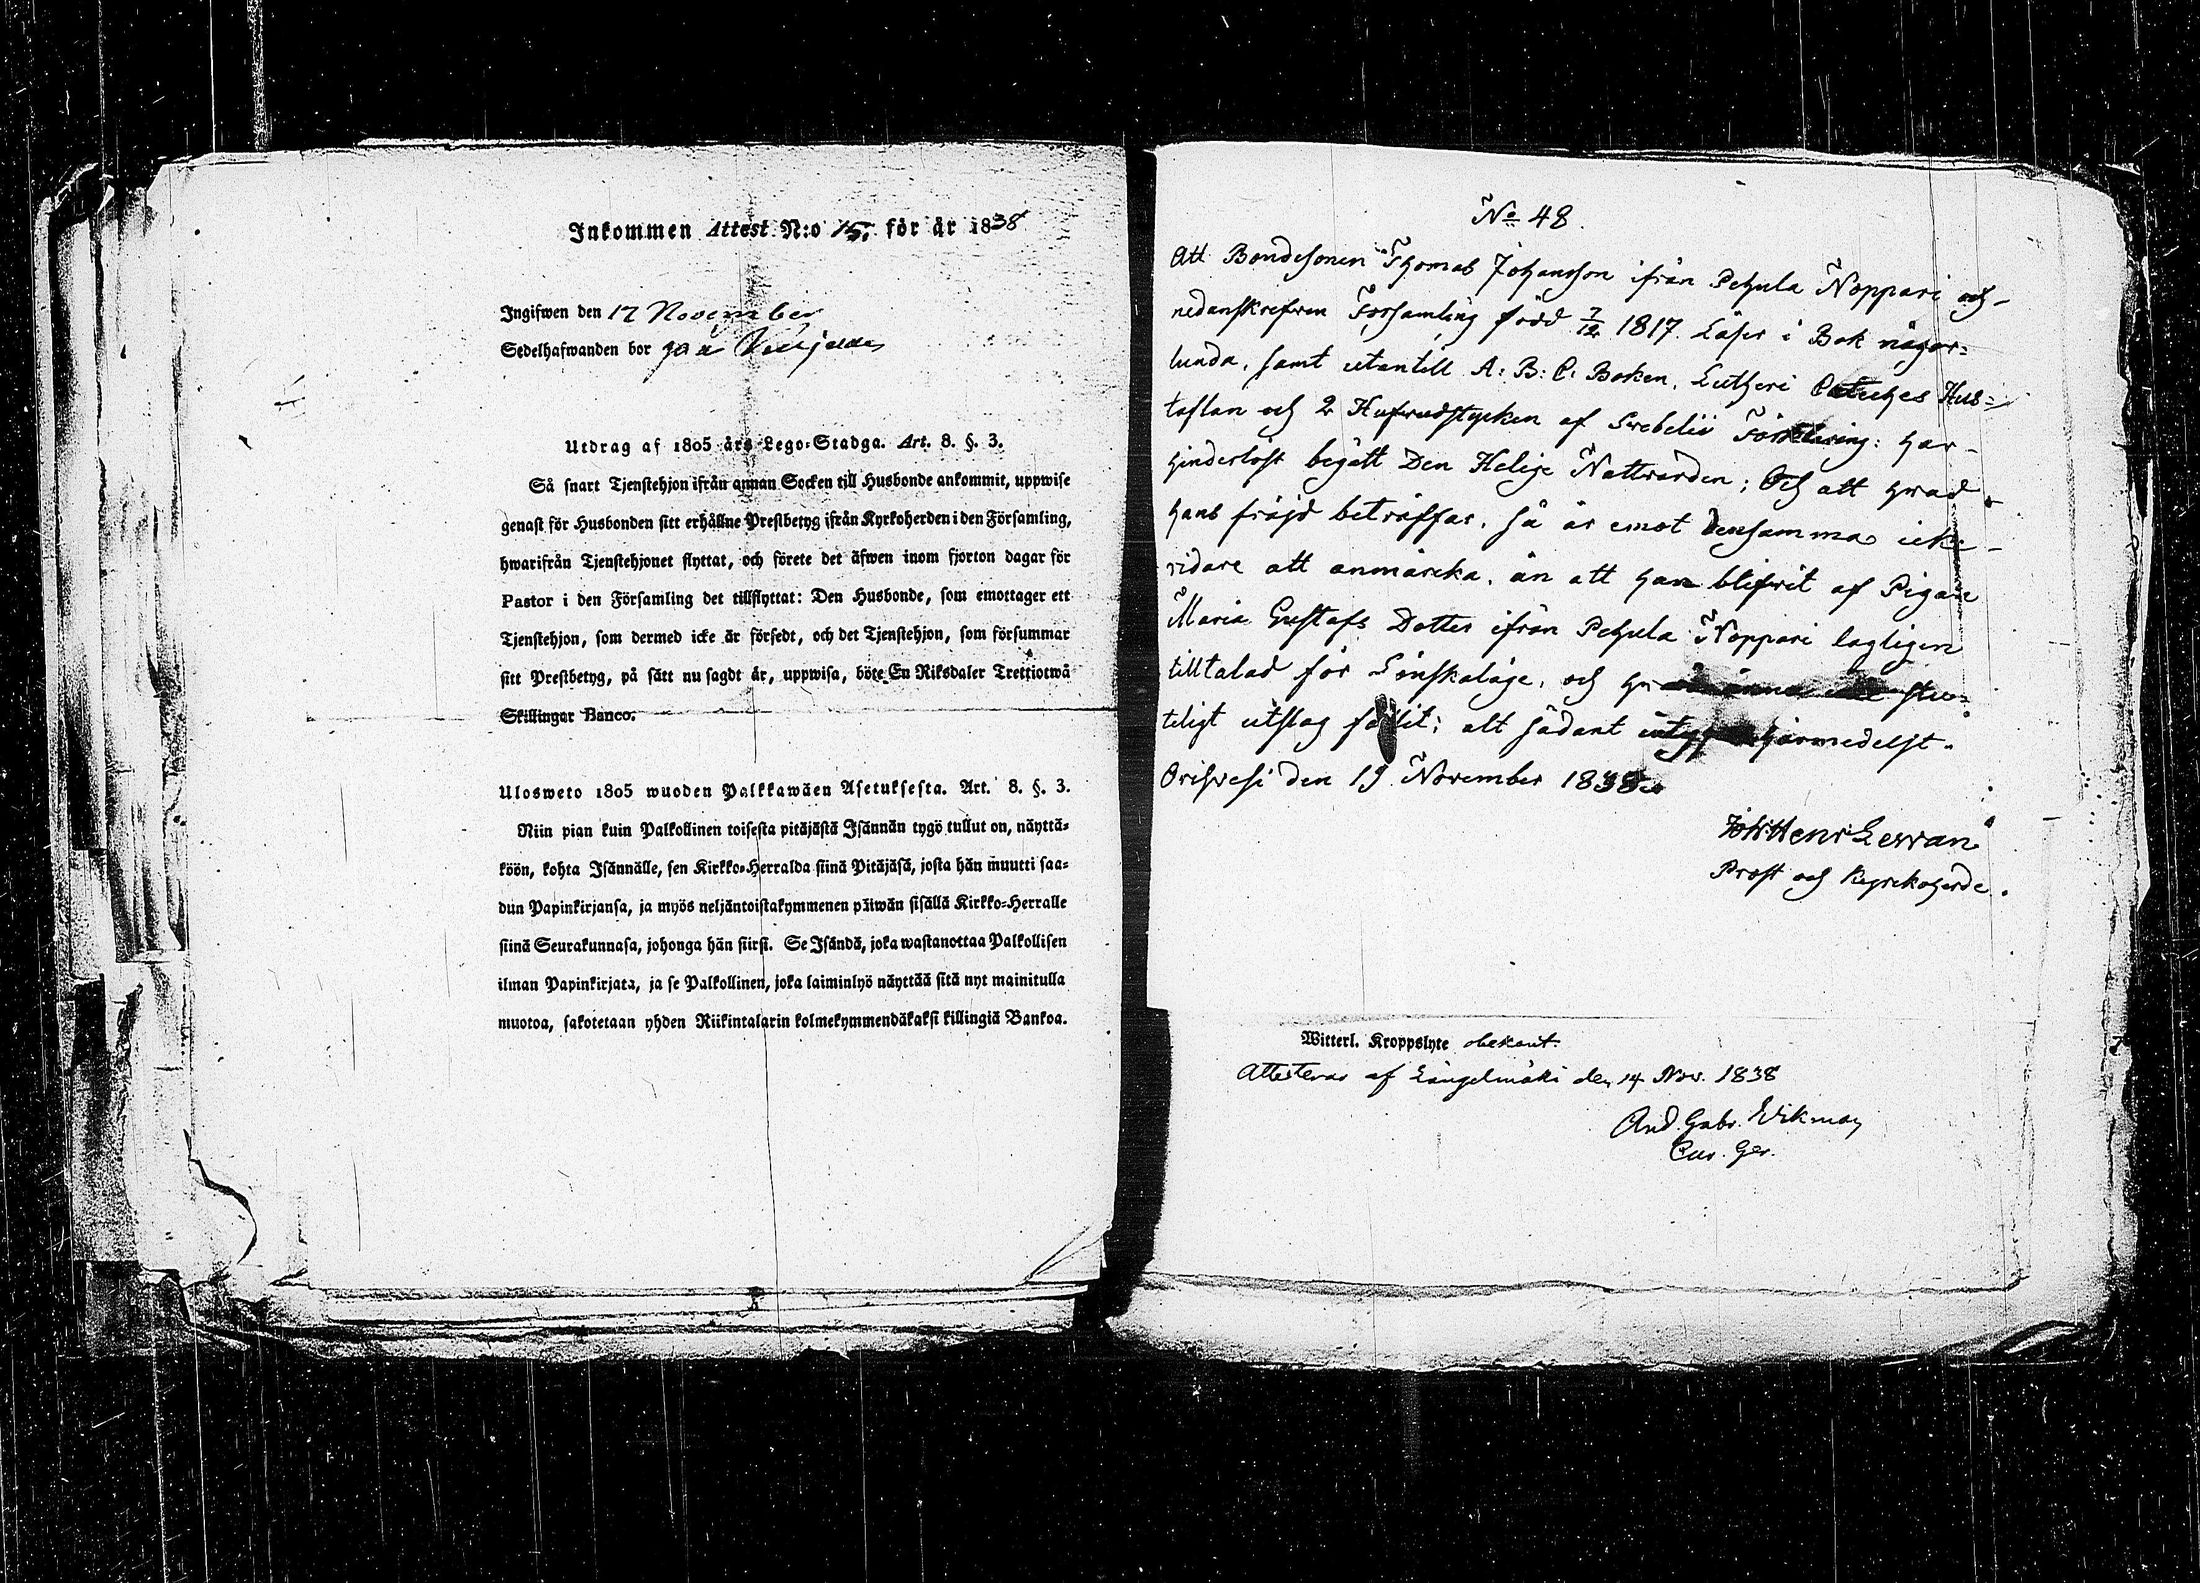 Inkommen Attest N:o 15. för år 1838
Ingifwen den 17 November
Sedelhafwanden bor på
Utdrag af 1805 års Lego-Stadga. Art. 8. §. 3.
Så snart Tjenstehjon ifrån annan Socken till Husbonde ankommit, uppwise
genast för Husbonden sitt erhållne Prestbetyg ifrån Kyrkoherden i den Församling,
hwarifrån Tjenstehjonet flyttat, och förete det äfwen inom fjorton dagar för
Pastor i den Församling det tillflyttat: Den Husbonde, som emottager ett
Tjenstehjon, som dermed icke är försedt, och det Tjenstehjon, som försummar
sitt Prestbetyg, på sätt nu sagdt är, uppwisa, böte En Riksdaler Trettiotwå
Skillingar Banco.
Ulosweto 1805 wuoden Palkkawäen Asetuksesta. Art. 8. §. 3.
Niin pian kuin Palkollinen toisesta pitäjästä Isännän tygö tullut on, näyttä-
köön, kohta Isännälle, sen Kirkko-Herralda siinä Pitäjäsä, josta hän muutti saa-
dun Papinkirjansa, ja myös neljäntoistakymmenen päiwän sisällä Kirkko-Herralle
siinä Seurakunnasa, johonga hän siirsi. Se Isändä, joka wastanottaa Palkollisen
ilman Papinkirjata, ja se Palkollinen, joka laiminlyö näyttää sitä nyt mainitulla
muotoa, sakotetaan yhden Riikintalarin kolmekymmendäkaksi killingiä Bankoa.
No 48.
Att Bondesonen Thomas Johansson ifrån Pehula Noppari och
nedanskrefven Församling född 7/12 1817. Läser i Bok någor-
lunda, samt utantill A: B: C: Boken, Lutheri Cateches Hus-
taflan och 2 Hufvudstycken af Svebelii Förklaring: har
hinderlöst begått Den Helige Nattvarden; Och att hvad
hans fräjd beträffar, så är emot densamma icke
vidare att anmärcka, än att han blifvit af Pigan
Maria Gustafs Dotter ifrån Pehula Noppari lagligen
tilltalad för Lönskaläge, och slu-
teligt utslag fallit; alt sådant intygas härmedelst.
Orihvesi den 13 November 1838.
Joh: Henr Lerran
Prost och Kyrckoherde.
Witterl. Kroppslyte obekant.
Attesteras af Längelmäki den 14 Nov. 1838
And. Gabr. Wikman
Cur. Ger.